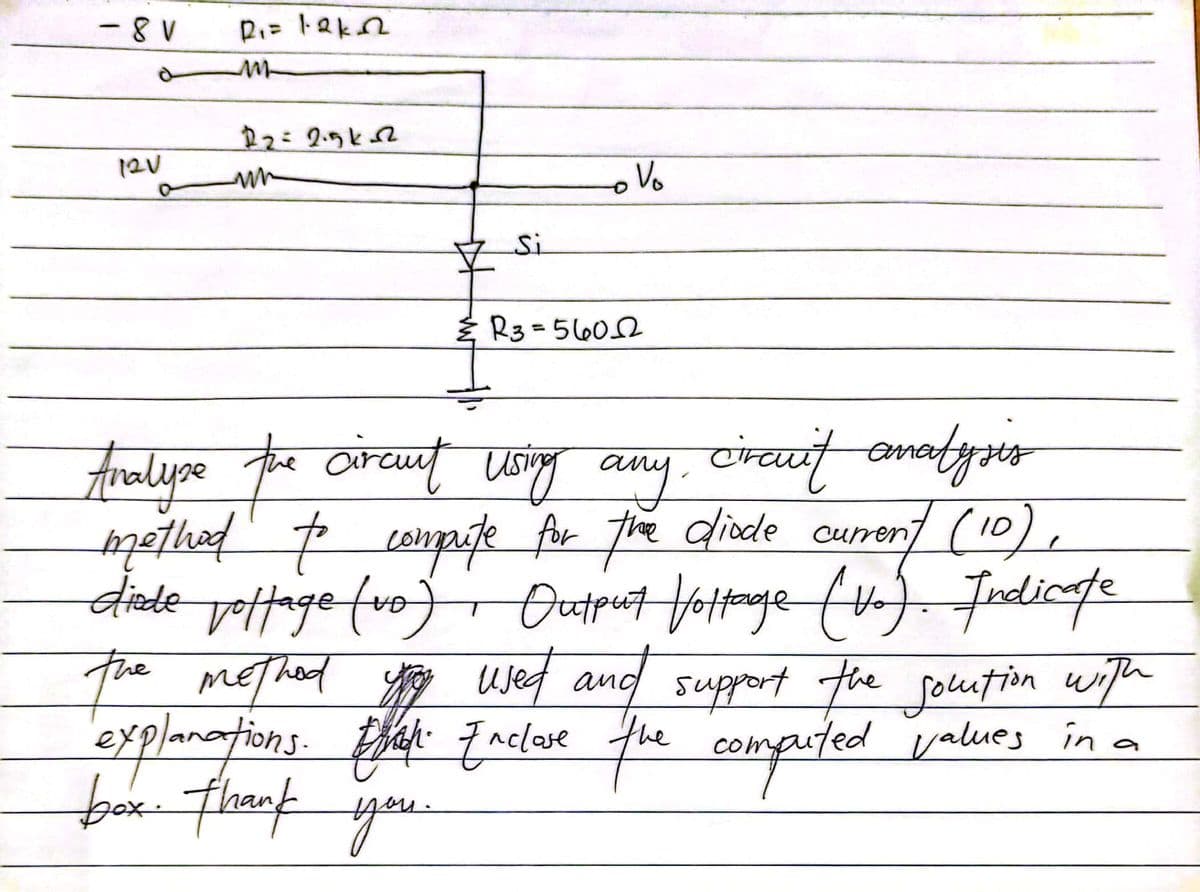 -8 V R1 = 1.2kΩ
R2 = 2.5kΩ
12V
Vo
Si
R3 = 560Ω
Analyze the circuit using any circuit analysis
method to compute for the diode current (ID),
diode voltage (VD), Output Voltage (Vo). Indicate
the method used and support the solution with
explanations. Enclose the computed values in a
box. Thank you.